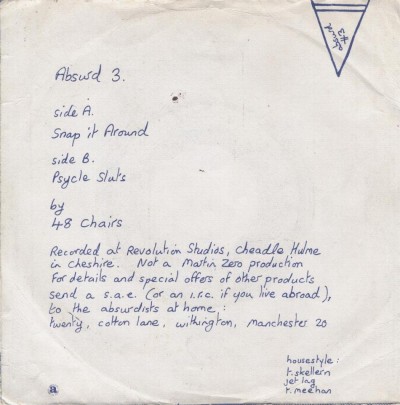 absurd
#3
Absurd 3.
side A.
Snap it Around
side B.
Psycle Sluts
by
48 Chairs
Recorded at Revolution Studios, Cheadle Hulme
in Cheshire. Not a Martin Zero production
For details and special offers of other products
send a s.a.e. (or an i.r.c. if you live abroad),
to the absurdists at home :
twenty, cotton lane, withington, manchester 20
housestyle :
t.skellern
jet lag
r.meehan
a